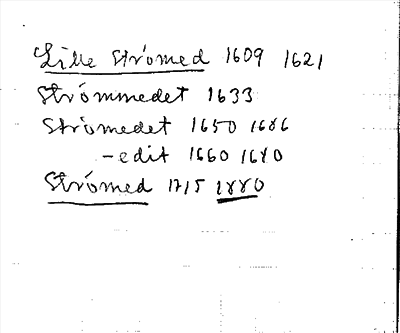 Lille Strömed 1609 1621
Strömmedet 1633
Strömedet 1650 1686
-edit 1660 1680
Strömed 1715 1880